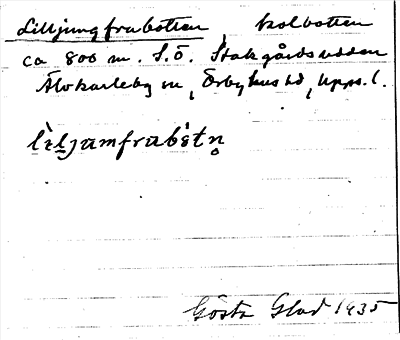 Lilljungfrubotten, kolbotten
ca 800 m. S.Ö. Stakgårdsudden
Älvkarleby sn, Örbyhus hd, Upps. l.
lìljuмfrubɛ̀tn̥
Gösta Glad 1935